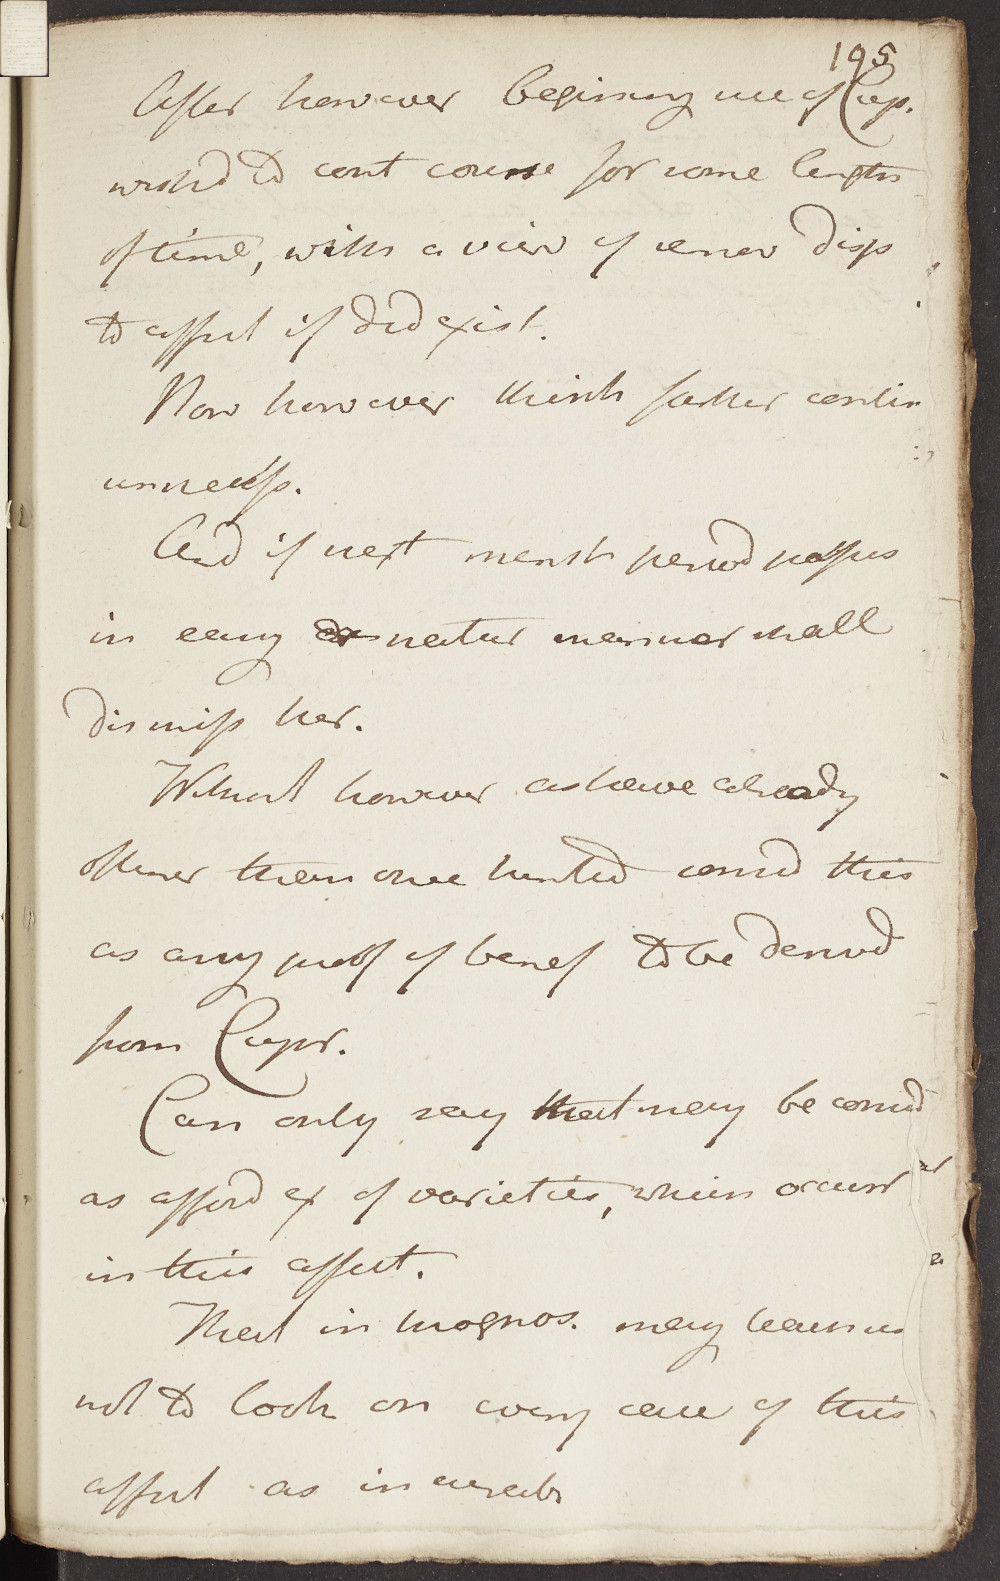 195
After however beginning use of Cup.
wishd to cont course for some length
of time, with a view of remov disp
to affect if did exist.
Now however think farther contin
unnecess.
And if next menst period passes
in easy & natur manner shall
dismiss her.
Without however as have already
oftener than once hinted consid this
as any proof of benef to be derivd
from Cupr.
Can only say that may be consid
as afford ex of varieties, which occurr
in this affect.
That in prognos. may learn us
not to look on every case of this
affect as incurab